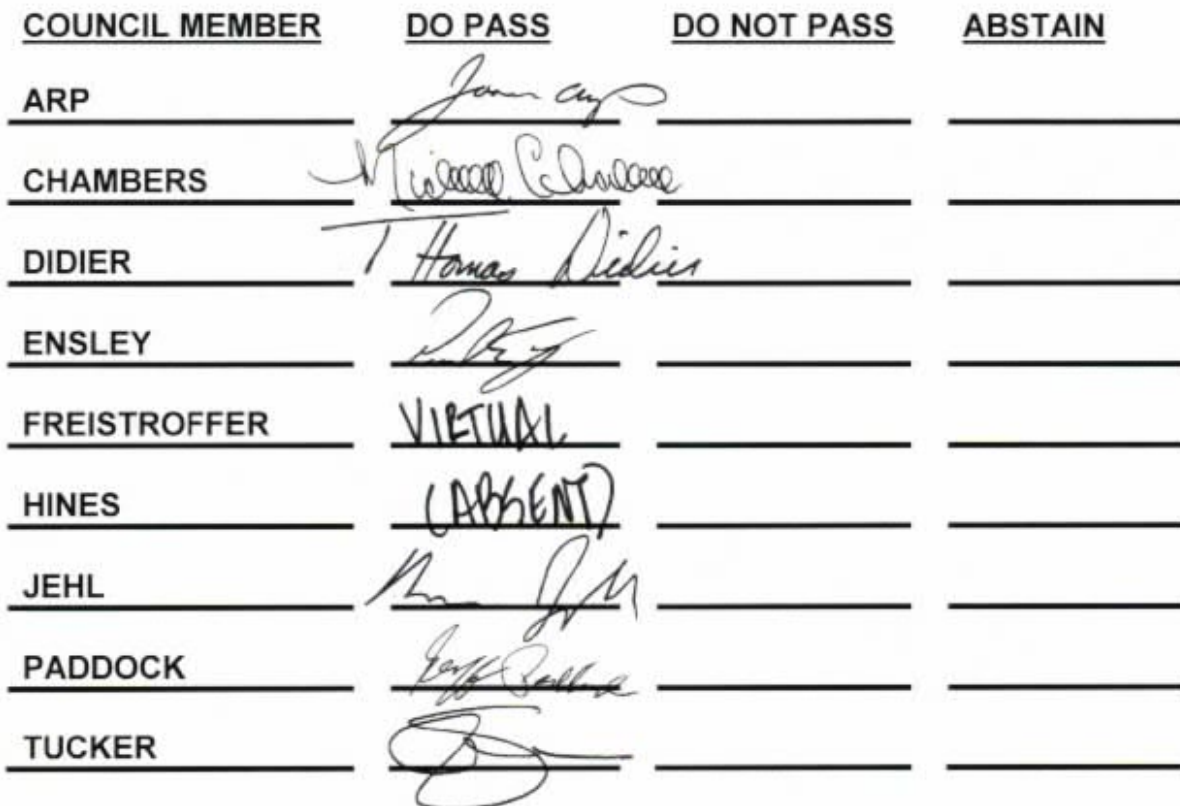 COUNCIL MEMBER DO PASS DO NOT PASS ABSTAIN
ARP
CHAMBERS
DIDIER THomas Didier
ENSLEY
FREISTROFFER VIRTUAL
HINES (ABSENT)
JEHL
PADDOCK
TUCKER